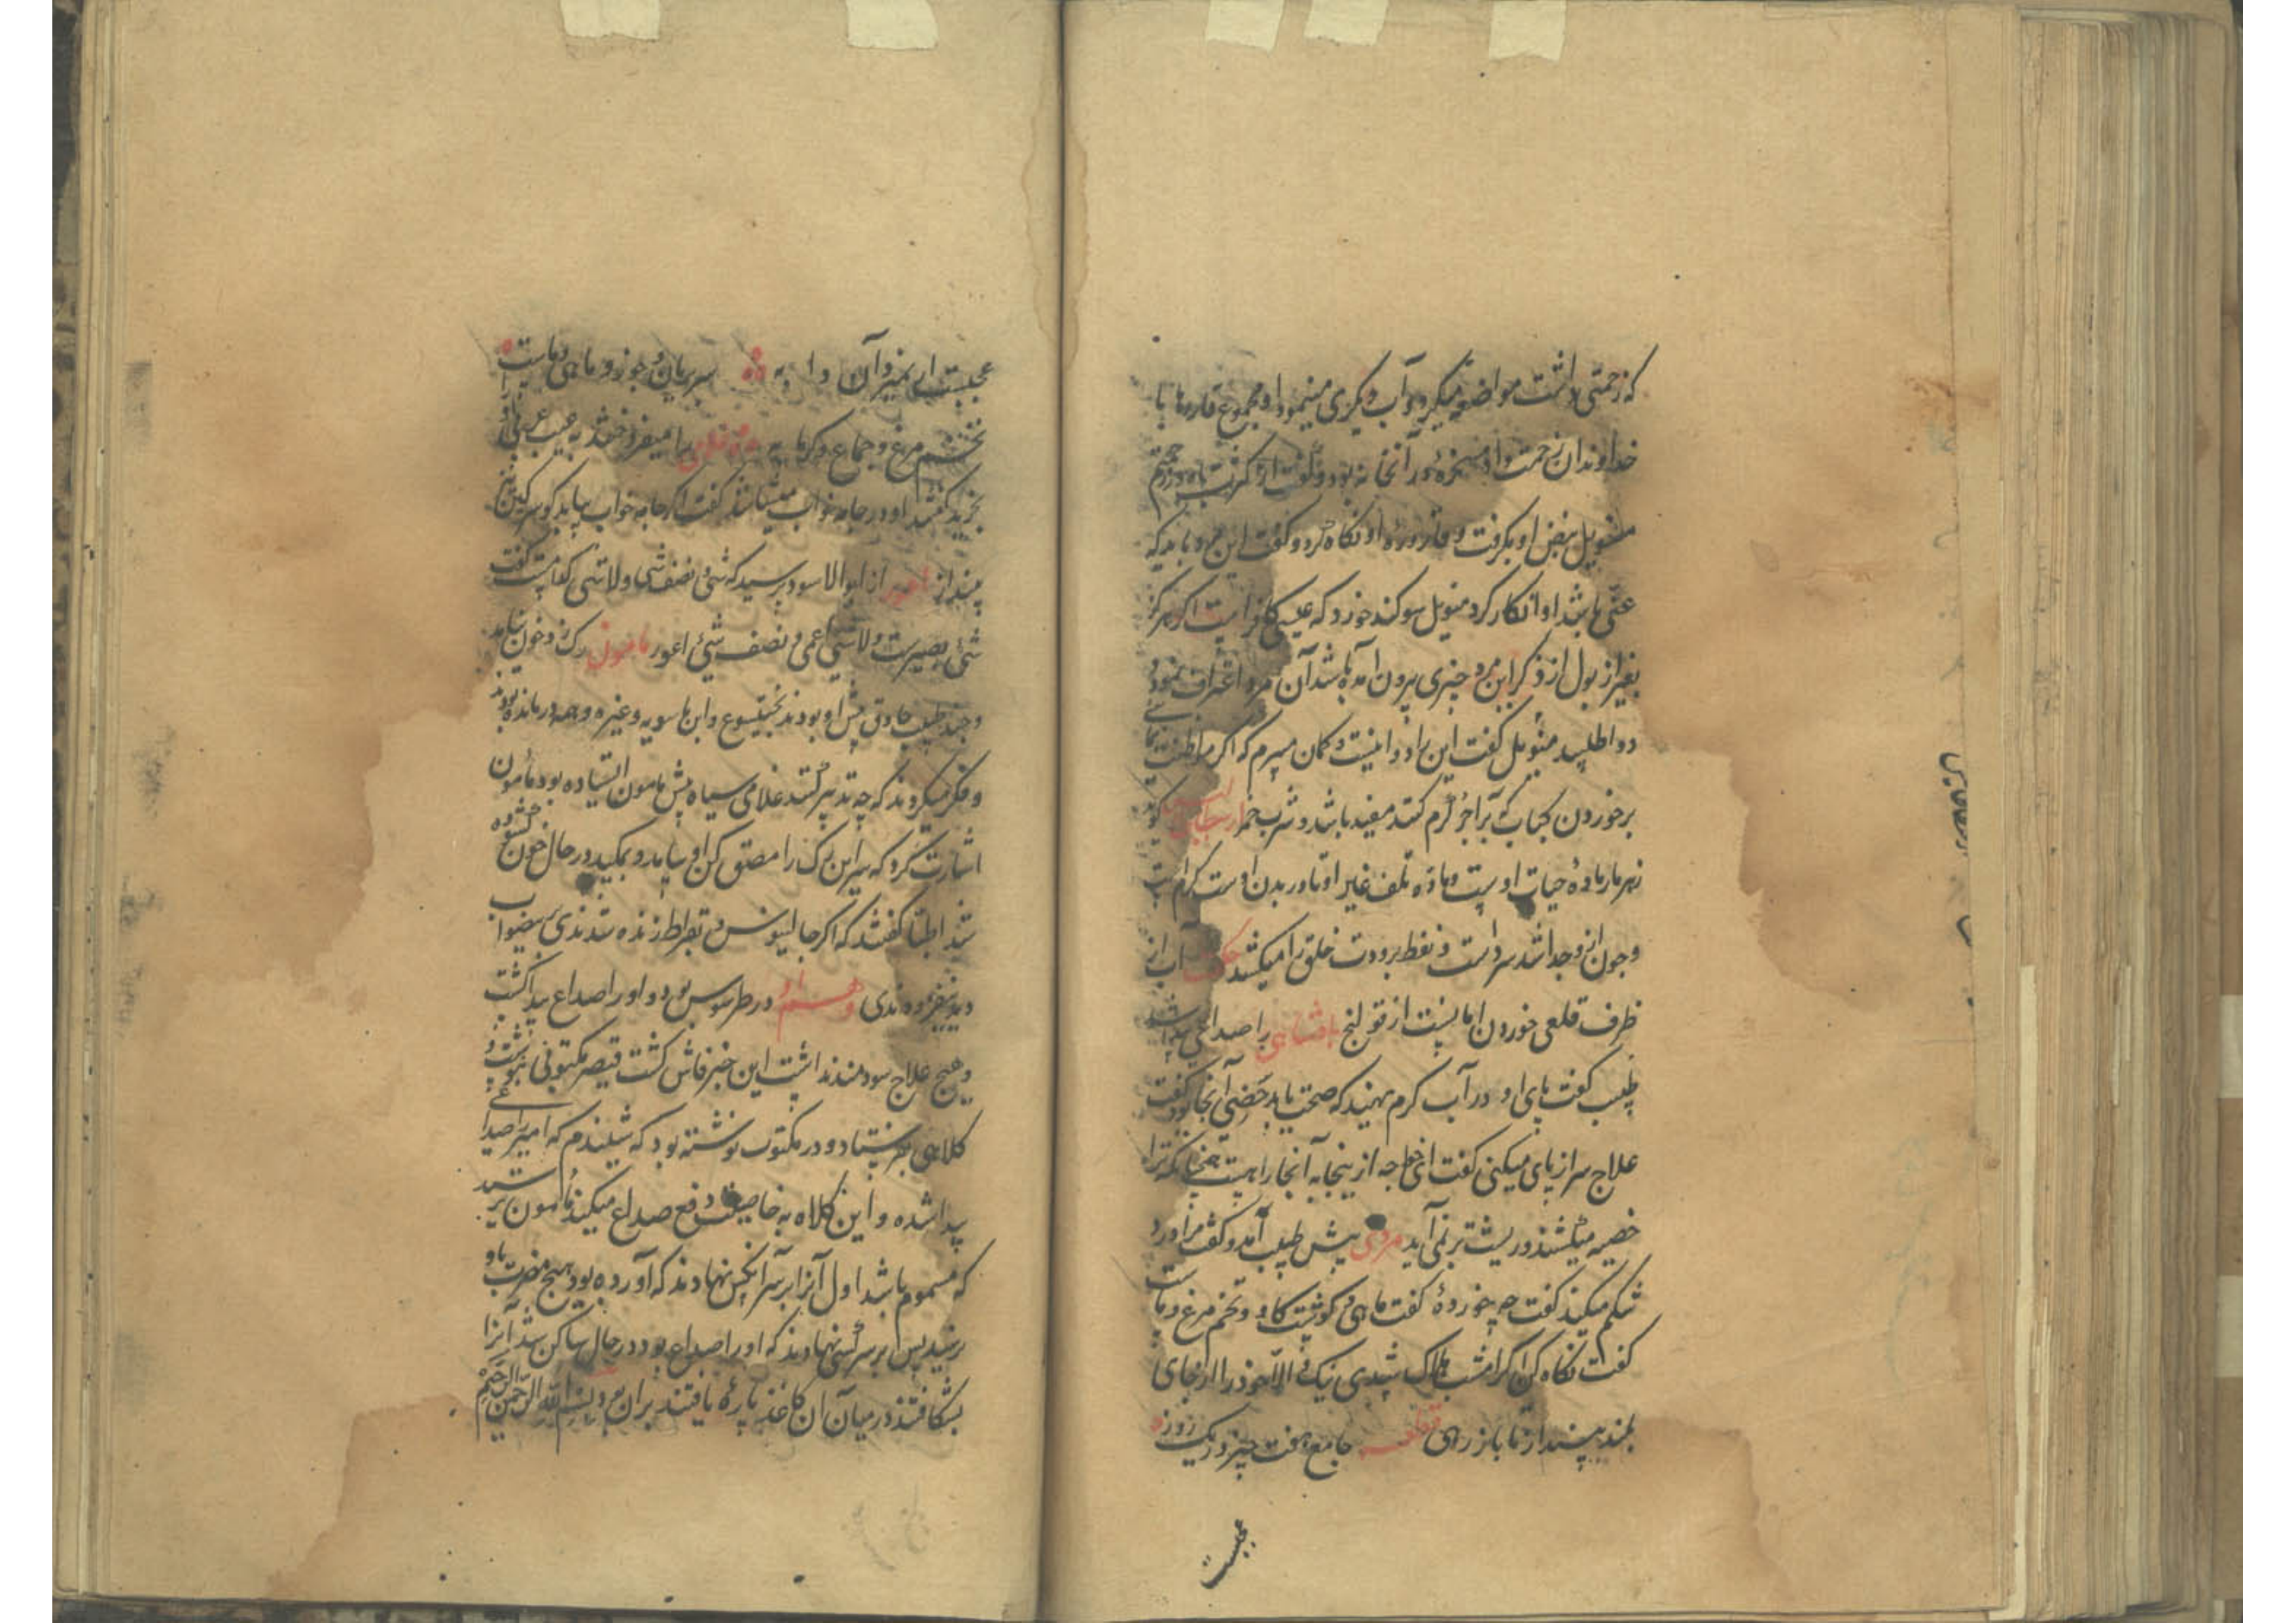 که زحمتی داشت مواضعه میکرد و آب دیگری مینمود او مجموع قاروره‌ها با
خداوندان زحمت و او مسخره در آنخانه بود
منویل نبض او بگرفت و قاروره او نکاه کرد و کفت این مرد باید که
عنی باشد او انکار کرد منویل سوکند خورد که عیسی کافر است اکر هرکز
بغیر از بول از ذکر این مرد چیزی بیرون آمده باشد آن مرد اعتراف نمود و
دوا طلبید منویل کفت این را دوا نیست و کمان میبرم که اکر مواظبت نمائی
برخوردن کباب که بر آجر کرم کنند مفید باشد و شرب خمر کوید
زهر مار ماده حیات اوست و ماده تلف غیر او تا در بدن اوست کرم است
و چون ازو جدا شد سرد است و بفط برودت خلق را میکشد حکیمی آب از
ظرف قلعی خوردن امانیست از قولنج پادشاهی را صداعی پیدا شد
طبیب کفت پای او در آب کرم نهید که صحت یابد خصی آنجا بود کفت
علاج سر از پای میکنی کفت ای خواجه از اینجا به آنجا راهیست همچنانکه ترا
خصیه میکشند و ریشت بر نمی‌آید مردی پیش طبیب آمد و کفت مرا درد
شکم میکند کفت چه خورده کفت ماهی و کوشت کاو و تخم مرغ و ماست
کفت نکاه کن اکر امشب هلاک شدی نیک و الا خود را از جای
بلند بینداز تا باز رهی جامع هفت چیز در یک روز
عجبست
عجبست ار نمیرد آن سیر بریان و جوز و ماهی و ماست
تخم مرغ و جماع و کرمابه را میفروختند به عیب
بخرید کفتند او در جامه خواب میشاشد کفت اکر جامه خواب بیابد کو سرکین نیز
بینداز اعور از ابوالاسود پرسید که شی و نصف شی و لاشی کدامست کفت
شی بصیرست و لاشی اعمی و نصف شی اعور مامون رک زد خون نیامد
و چند طبیب حاذق پیش او بودند بختیشوع و ابن ماسویه و غیره و همه درمانده بودند
و فکر میکردند که چه تدبیر کنند غلامی سیاه پیش مامون ایستاده بود مامون
اشارت کرد که سر این رک را مص کن او بیامد و بمکید در حال خون کشوده
شد اطبا کفتند که اکر جالینوس و بقراط زنده شدندی
بفرمودندی و هم او در طرسوس بود و او را صداع پیدا کشت
و هیچ علاج سودمند نداشت این خبر فاش کشت قیصر مکتوبی نوشت و
کلاهی بفرستاد و در مکتوب نوشته بود که شنیدم که امیر را صداعی
پیدا شده و این کلاه به خاصیت دفع صداع میکند مامون بترسید
که مسموم باشد اول آنرا بر سر آنکس نهادند که آورده بود هیچ مضرت باو
نرسید پس بر سر کسی نهادند که او را صداع بود در حال ساکن شد آنرا
بشکافتند در میان آن کاغذ پاره یافتند بران بود بسم الله الرحمن الرحیم